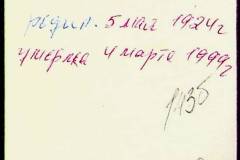 родил. 5 мая 1924 г
умерла 4 марта 1999 г
1135